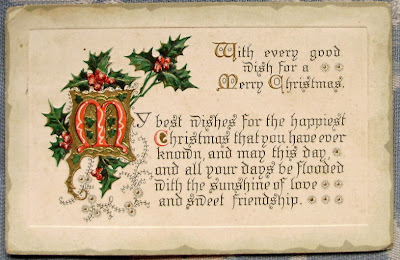 With every good
wish for a
Merry Christmas.
My best wishes for the happiest
Christmas that you have ever
known, and may this day
and all your days be flooded
with the sunshine of love
and sweet friendship.